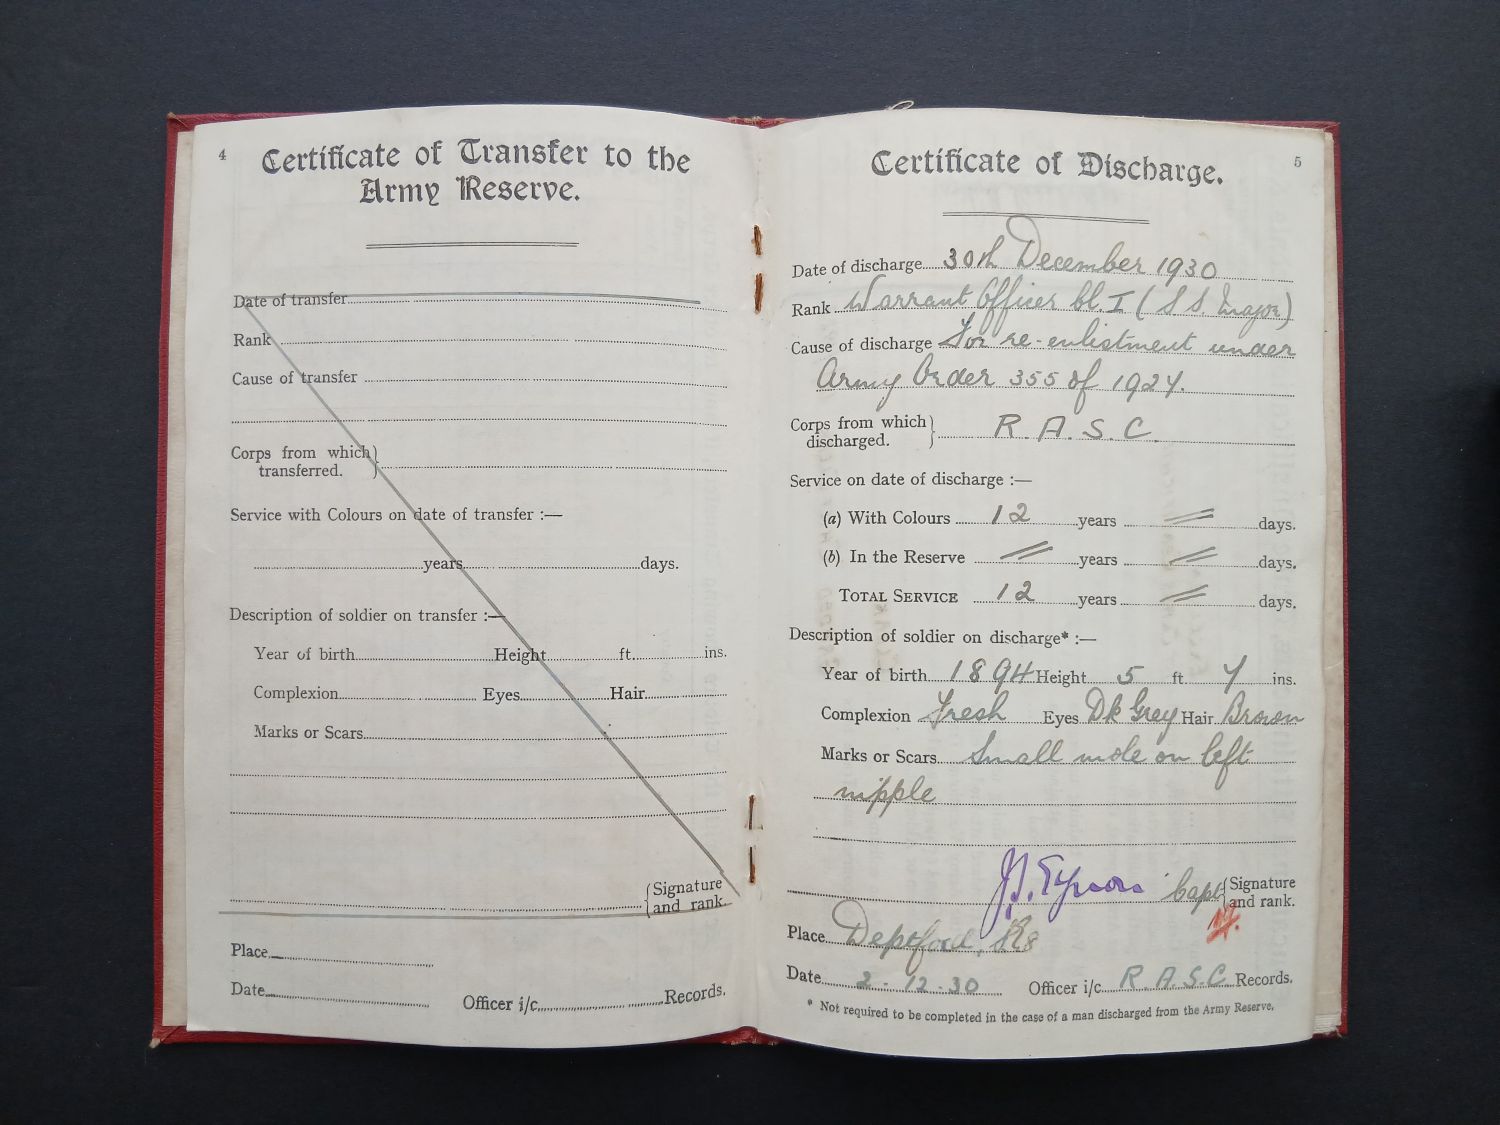 4
Certificate of Transfer to the
Army Reserve.
Date of transfer
Rank
Cause of transfer
Corps from which
transferred.
Service with Colours on date of transfer :—
years days.
Description of soldier on transfer :—
Year of birth Height ft. ins.
Complexion Eyes Hair
Marks or Scars
Signature
and rank.
Place
Date Officer i/c Records.
5
Certificate of Discharge.
Date of discharge 30th December 1930
Rank Warrant Officer Cl. I (S.S. Major)
Cause of discharge For re-enlistment under
Army Order 355 of 1924.
Corps from which
discharged. R.A.S.C.
Service on date of discharge :—
(a) With Colours 12 years days.
(b) In the Reserve years days.
TOTAL SERVICE 12 years days.
Description of soldier on discharge* :—
Year of birth 1894 Height 5 ft 7 ins.
Complexion Fresh Eyes Dk Grey Hair Brown
Marks or Scars Small mole on left
nipple
Capt Signature
and rank.
Place Deptford,
Date 2.12.30 Officer i/c R.A.S.C. Records.
* Not required to be completed in the case of a man discharged from the Army Reserve.